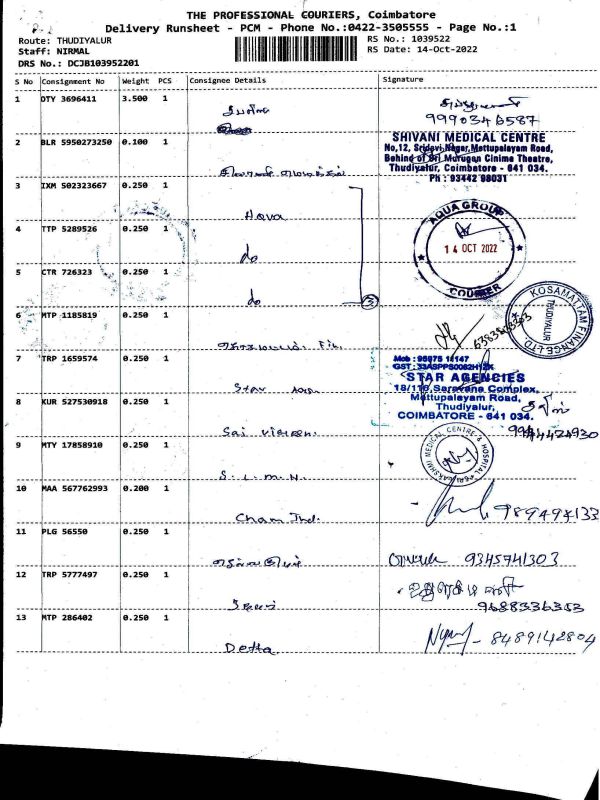 THE PROFESSIONAL COURIERS, Coimbatore
Delivery Runsheet - PCM - Phone No.:0422-3505555 - Page No.:1
Route: THUDIYALUR
RS No.: 1039522
Staff: NIRMAL
RS Date: 14-Oct-2022
DRS No.: DCJB103952201
S No Consignment No Weight PCS Consignee Details Signature
1 OTY 3696411 3.500 1
2 BLR 5950273250 0.100 1
SHIVANI MEDICAL CENTRE
No,12, Sridevi Nagar, Mettupalayam Road,
Behind of Sri Murugan Cinime Theatre,
Thudiyalur, Coimbatore - 641 034.
Ph : 93442 98031
3 IXM 502323667 0.250 1 Aqua
AQUA GROUP
14 OCT 2022
COURIER
4 TTP 5289526 0.250 1 do
5 CTR 726323 0.250 1 do
3
6 MTP 1185819 0.250 1
KOSAMATTAM FINANCE LTD
THUDIYALUR
7 TRP 1659574 0.250 1 Star
Mob : 95875 18147
STAR AGENCIES
18/110, Saravana Complex,
Mettupalayam Road,
Thudiyalur,
COIMBATORE - 641 034.
8 KUR 527530918 0.250 1 Sai
9 MTY 17858910 0.250 1 S.L.M.H.
SRI LAKSHMI MEDICAL CENTRE & HOSPITAL
10 MAA 567762993 0.200 1
11 PLG 56550 0.250 1
9345741303
12 TRP 5777497 0.250 1
9688336353
13 MTP 286402 0.250 1 Detta
8489142804